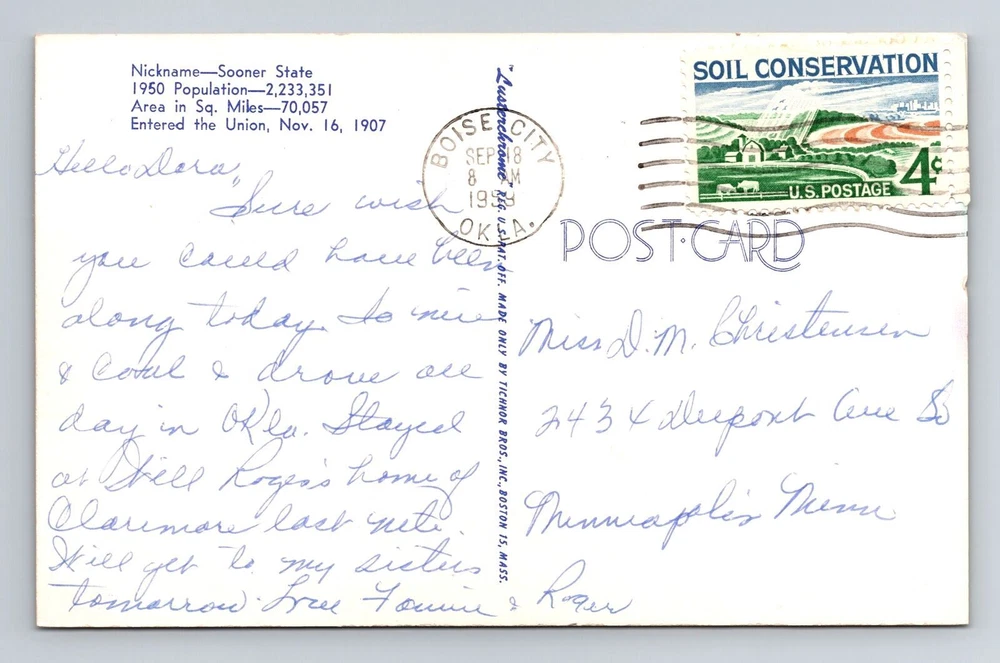 Nickname—Sooner State
1950 Population—2,233,351
Area in Sq. Miles—70,057
Entered the Union, Nov. 16, 1907
Hello Dora,
Sure wish
you could have been
along today. So nice
& cool & drove all
day in Okla. Stayed
at Will Rogers home of
Claremore last nite.
Will get to my sisters
tomorrow. Love &
Roger
"Lusterchrome" REG. U.S. PAT. OFF. MADE ONLY BY TICHNOR BROS., INC., BOSTON 15, MASS.
BOISE CITY
SEP 18
8 AM
OKLA.
SOIL CONSERVATION
4¢
U.S. POSTAGE
POST CARD
Miss D. M. Christensen
2434 Dupont Ave So
Minneapolis Minn